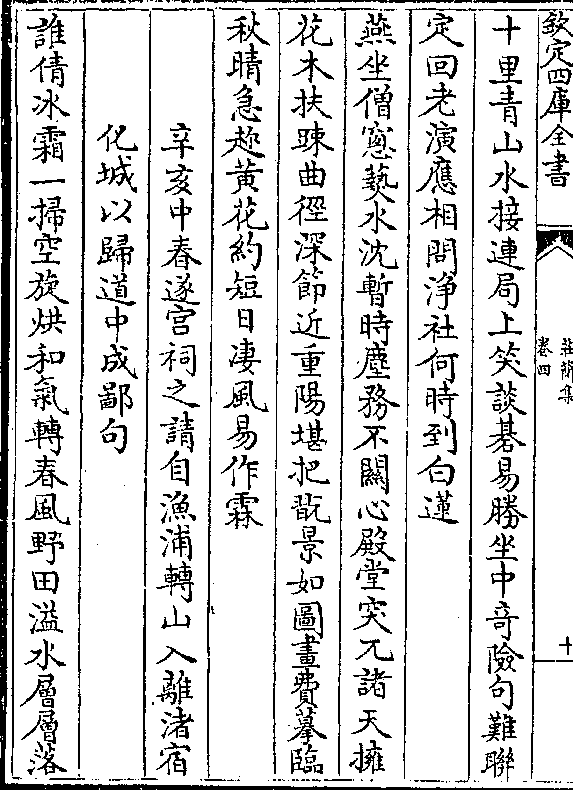 欽定四庫全書
莊簡集
卷四
十
十里青山水接連局上笑談碁易勝坐中奇險句難聯
定回老演應相問淨社何時到白蓮
燕坐僧窓爇水沈暫時塵務不關心殿堂突兀諸天擁
花木扶踈曲徑深節近重陽堪把翫景如圖畫費摹臨
秋晴急趂黄花約短日凄風易作霖
辛亥中春遂宫祠之請自漁浦轉山入離渚宿
化城以歸道中成鄙句
誰倩冰霜一掃空旋烘和氣轉春風野田溢水層層落